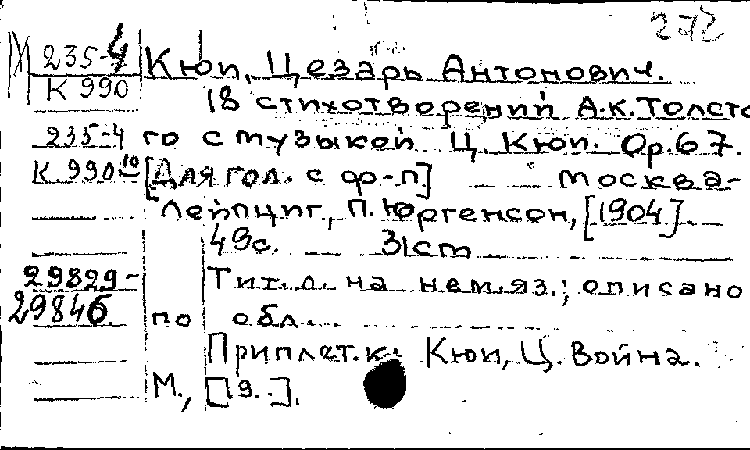 272
М 235-4 Кюи, Цезарь Антонович.
К 990 18 стихотворений А.К.Толсто
235-4 го с музыкой Ц. Кюи. Ор.67.
К 990 10 [Для гол. с ф-п] Москва-
Лейпциг, П. Юргенсон, [1904].
49с. 31cm
29829- Тит.л. на нем.яз.; описано
29846 по обл.
Приплет.к: Кюи, Ц. Война.
М., [19..].